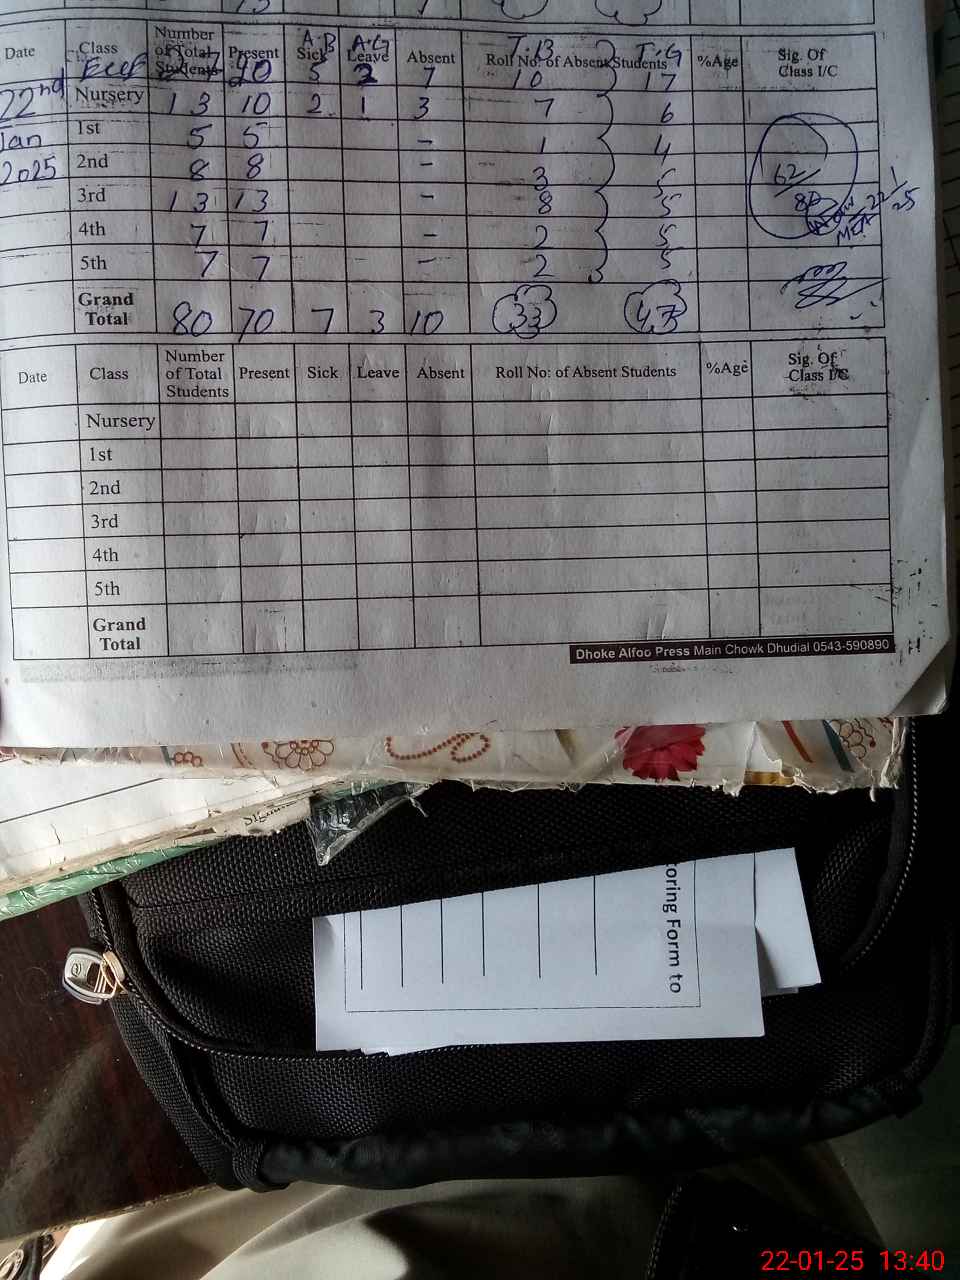 Date Class Number of Total Students Present A.B Sick A.G Leave Absent T.B Roll No: of Absent Students T.G %Age Sig. Of Class I/C
27 20 5 2 7 10 17
22nd Nursery 13 10 2 1 3 7 6
Jan 1st 5 5 - 1 4
2025 2nd 8 8 - 3 5
62
3rd 13 13 - 8 5 80
22/1/25
4th 7 7 - 2 5
5th 7 7 - 2 5
Grand Total 80 70 7 3 10 33 47
Date Class Number of Total Students Present Sick Leave Absent Roll No: of Absent Students %Age Sig. Of Class I/C
Nursery
1st
2nd
3rd
4th
5th
Grand Total
Dhoke Alfoo Press Main Chowk Dhudial 0543-590890
toring Form to
22-01-25 13:40